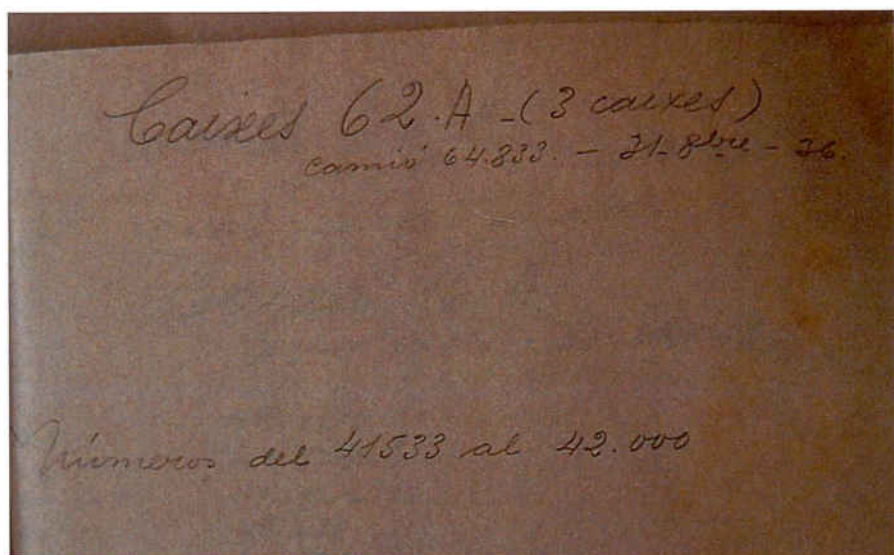 Caixes 62.A - (3 caixes)
camió 64.833. - 21-8bre - 36.
Números del 41533 al 42.000